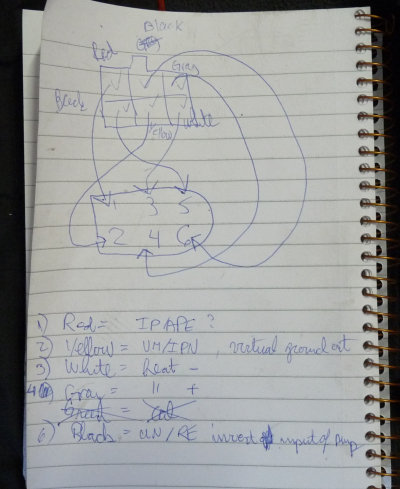 Black
Red
Gray
Gray
Black
Yellow
White
1 3 5
2 4 6
1) Red = IP APE ?
2) Yellow = VM/IPN, virtual ground
3) White = heat -
4) Gray = " +
6) Black = UN/RE input of pump